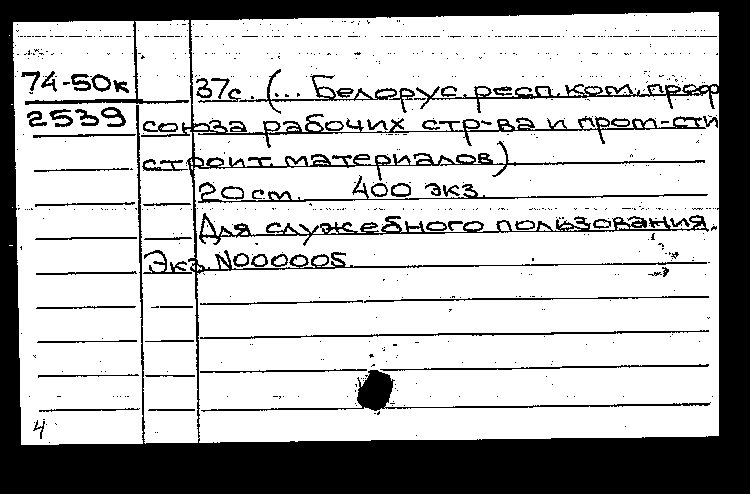 74-50к 37с. (... Белорус. респ. ком. проф
2539 союза рабочих стр-ва и пром-сти
строит. материалов)
20 см. 400 экз.
Для служебного пользования.
Экз. №000005
4